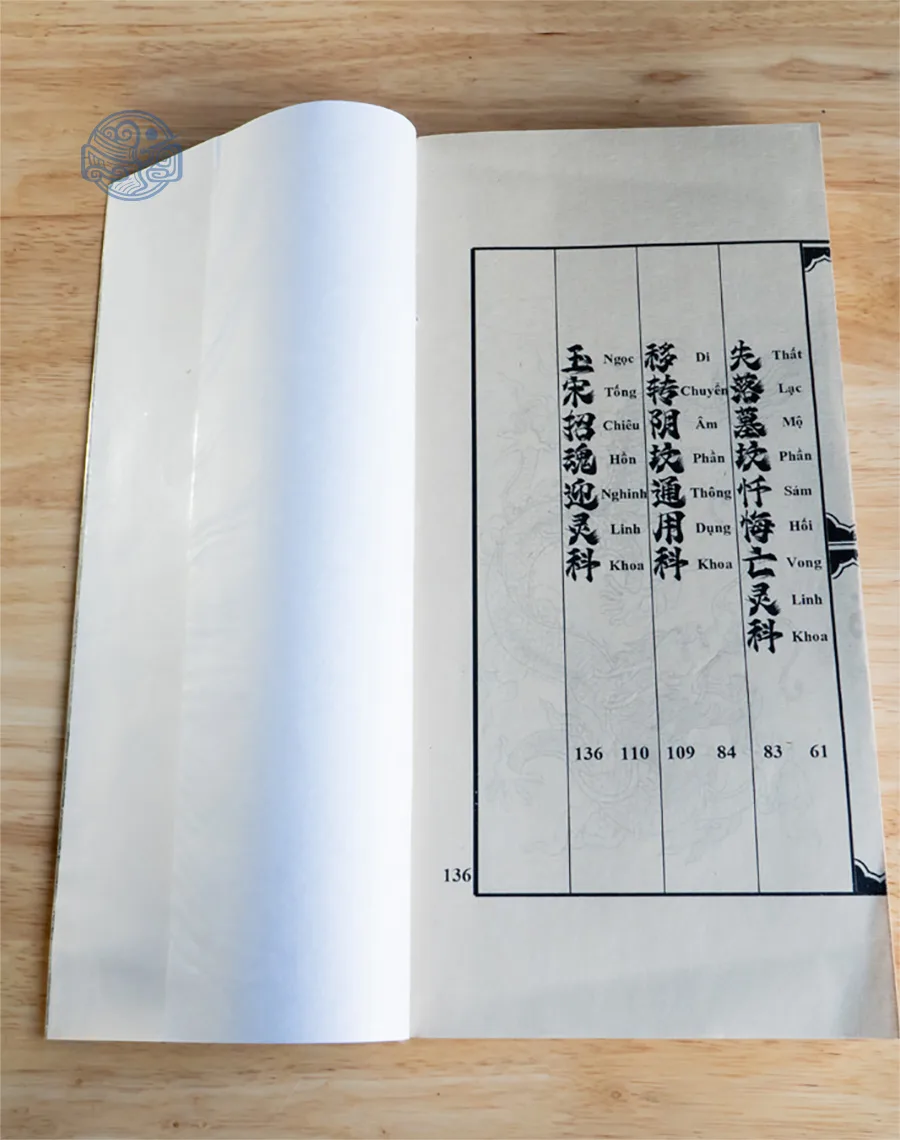 失落墓坟忏悔亡灵科
Thất Lạc Mộ Phần Sám Hối Vong Linh Khoa
83 61
移转阴坟通用科
Di Chuyển Âm Phần Thông Dụng Khoa
109 84
玉宋招魂迎灵科
Ngọc Tống Chiêu Hồn Nghinh Linh Khoa
136 110
136